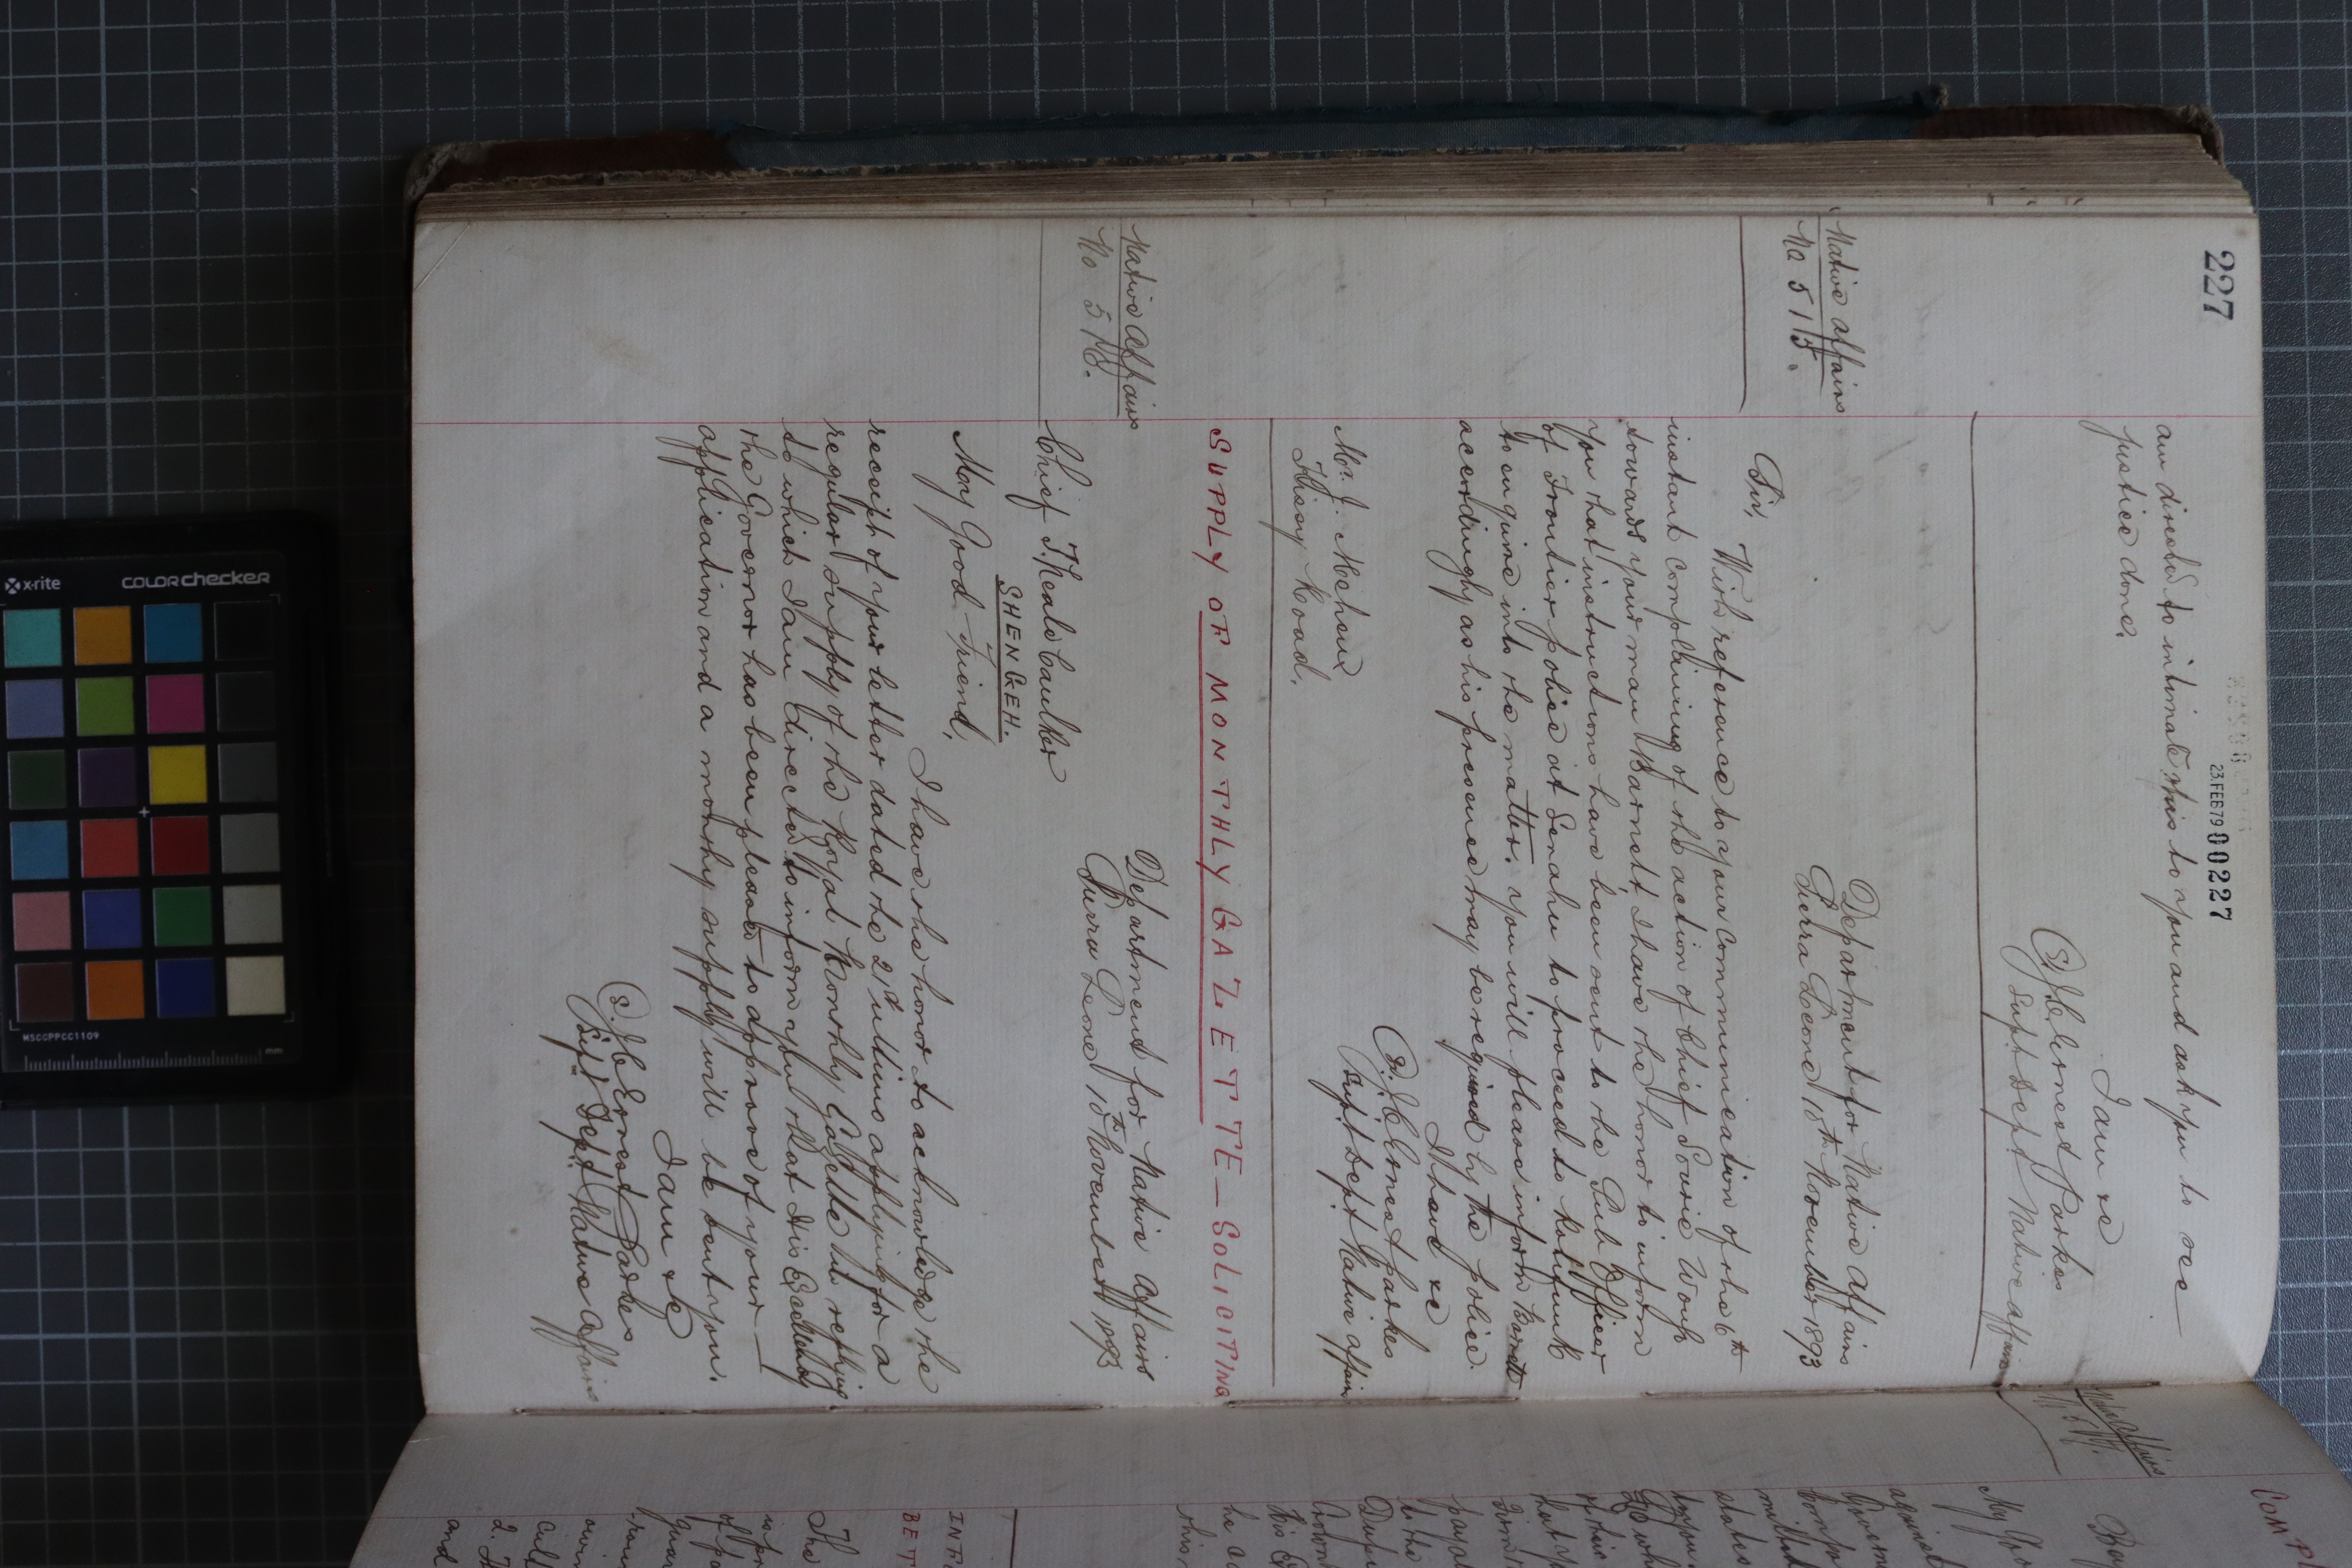 227
23.FEB79 00227
am directed to intimate this to you and ask you to see
justice done.
I am &c
(S) J C Ernest Parkes
Supt Dept Native Affairs
Native Affairs
No 515.
Department for Native Affairs
Sierra Leone 10th November 1893
Sir,
With reference to your communication of the 6th
instant complaining of the action of Chief Sourie
towards your man Barnett, I have the honor to inform
you that instructions have been sent to the Sub Officer
of Frontier police at Senahu to proceed to
to enquire into the matter. you will please inform Barnett
accordingly as his presence may be required by the police.
I have &c
(S). J C Ernest Parkes
Supt Dept Native Affairs
Mr. J.
Kissy Road.
SUPPLY OF MONTHLY GAZETTE — SOLICITING
Native Affairs
No 516.
Department for Native Affairs
Sierra Leone 10th November 1893
Chief T. Neale Caulker
SHENGEH.
My Good Friend,
I have the honor to acknowledge the
receipt of your letter dated the 21st ultimo applying for a
regular supply of the Royal Monthly Gazette in reply
to which I am directed to inform you that His Excellency
the Governor has been pleased to approve of your
application and a monthly supply will be sent you.
I am &c
(S). J C Ernest Parkes
Supt Dept Native Affairs
COMP
Native Affairs
My Go
against
Govern
states
of his
that y
to the
his E
he a
this
INF
BET
The
is pr
of pa
2. Th
and
x-rite
colorchecker
MSCCPPCC1109
mm